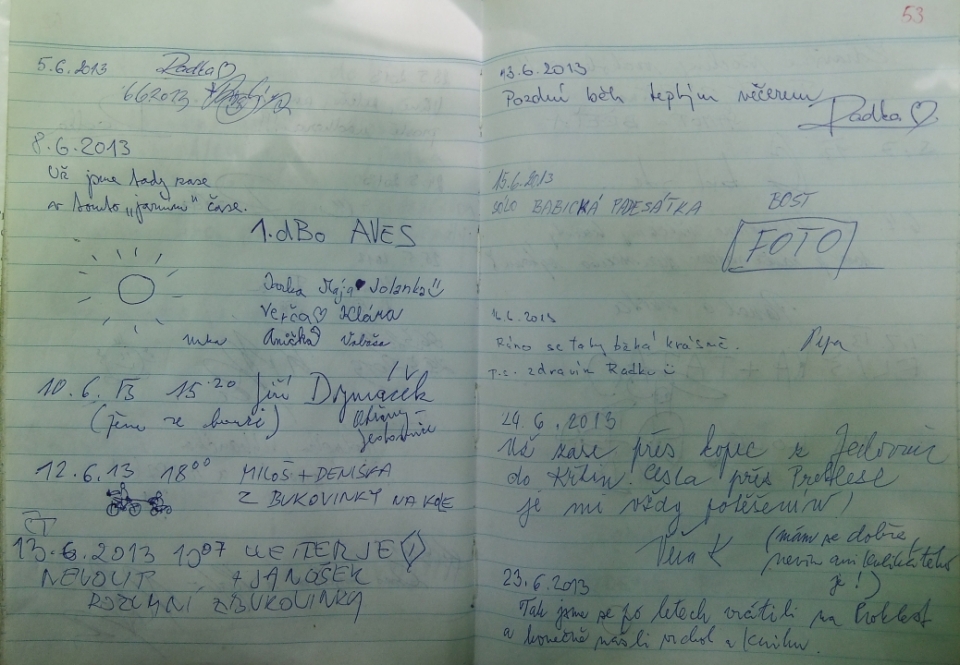 53
5.6.2013 Radka♡
6.6.2013
8.6.2013
Už jsme tady zase
v tomto „jarním" čase.
1.dBo AVES
Mája Jolanka
Verča♡ Klára
Anička
10.6.13 15:20 Jiří
(jsem ze
12.6.13 18⁰⁰ MILOŠ + DENISKA
Z BUKOVINKY NA KOLE
ČT
13.6.2013 19⁰⁷ JE
+ JANOŠEK
Z BUKOVINKY
13.6.2013
Pozdní běh teplým večerem
Radka♡
15.6.2013
SÓLO BABICKÁ PADESÁTKA
FOTO
16.6.2013
Ráno se tohy bzká krásně. Pepa
P.S. zdravím Radku
Už zase přes kopec z Jedovnic
do Křtin. Cesta přes Proklest
je mi vždy potěšením!
Věra K (mám se dobře,
nevím ani kolikátého
je!)
23.6.2013
Tak jsme se po letech vrátili na Proklest
a konečně našli vrchol a knihu.